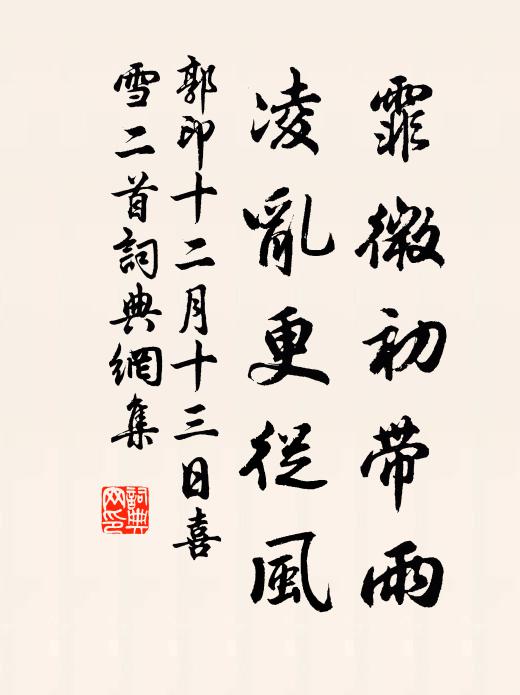 霏微初带雨
凌亂更從風
郭印十二月十三日喜
雪二首詞典網集
詞典网印